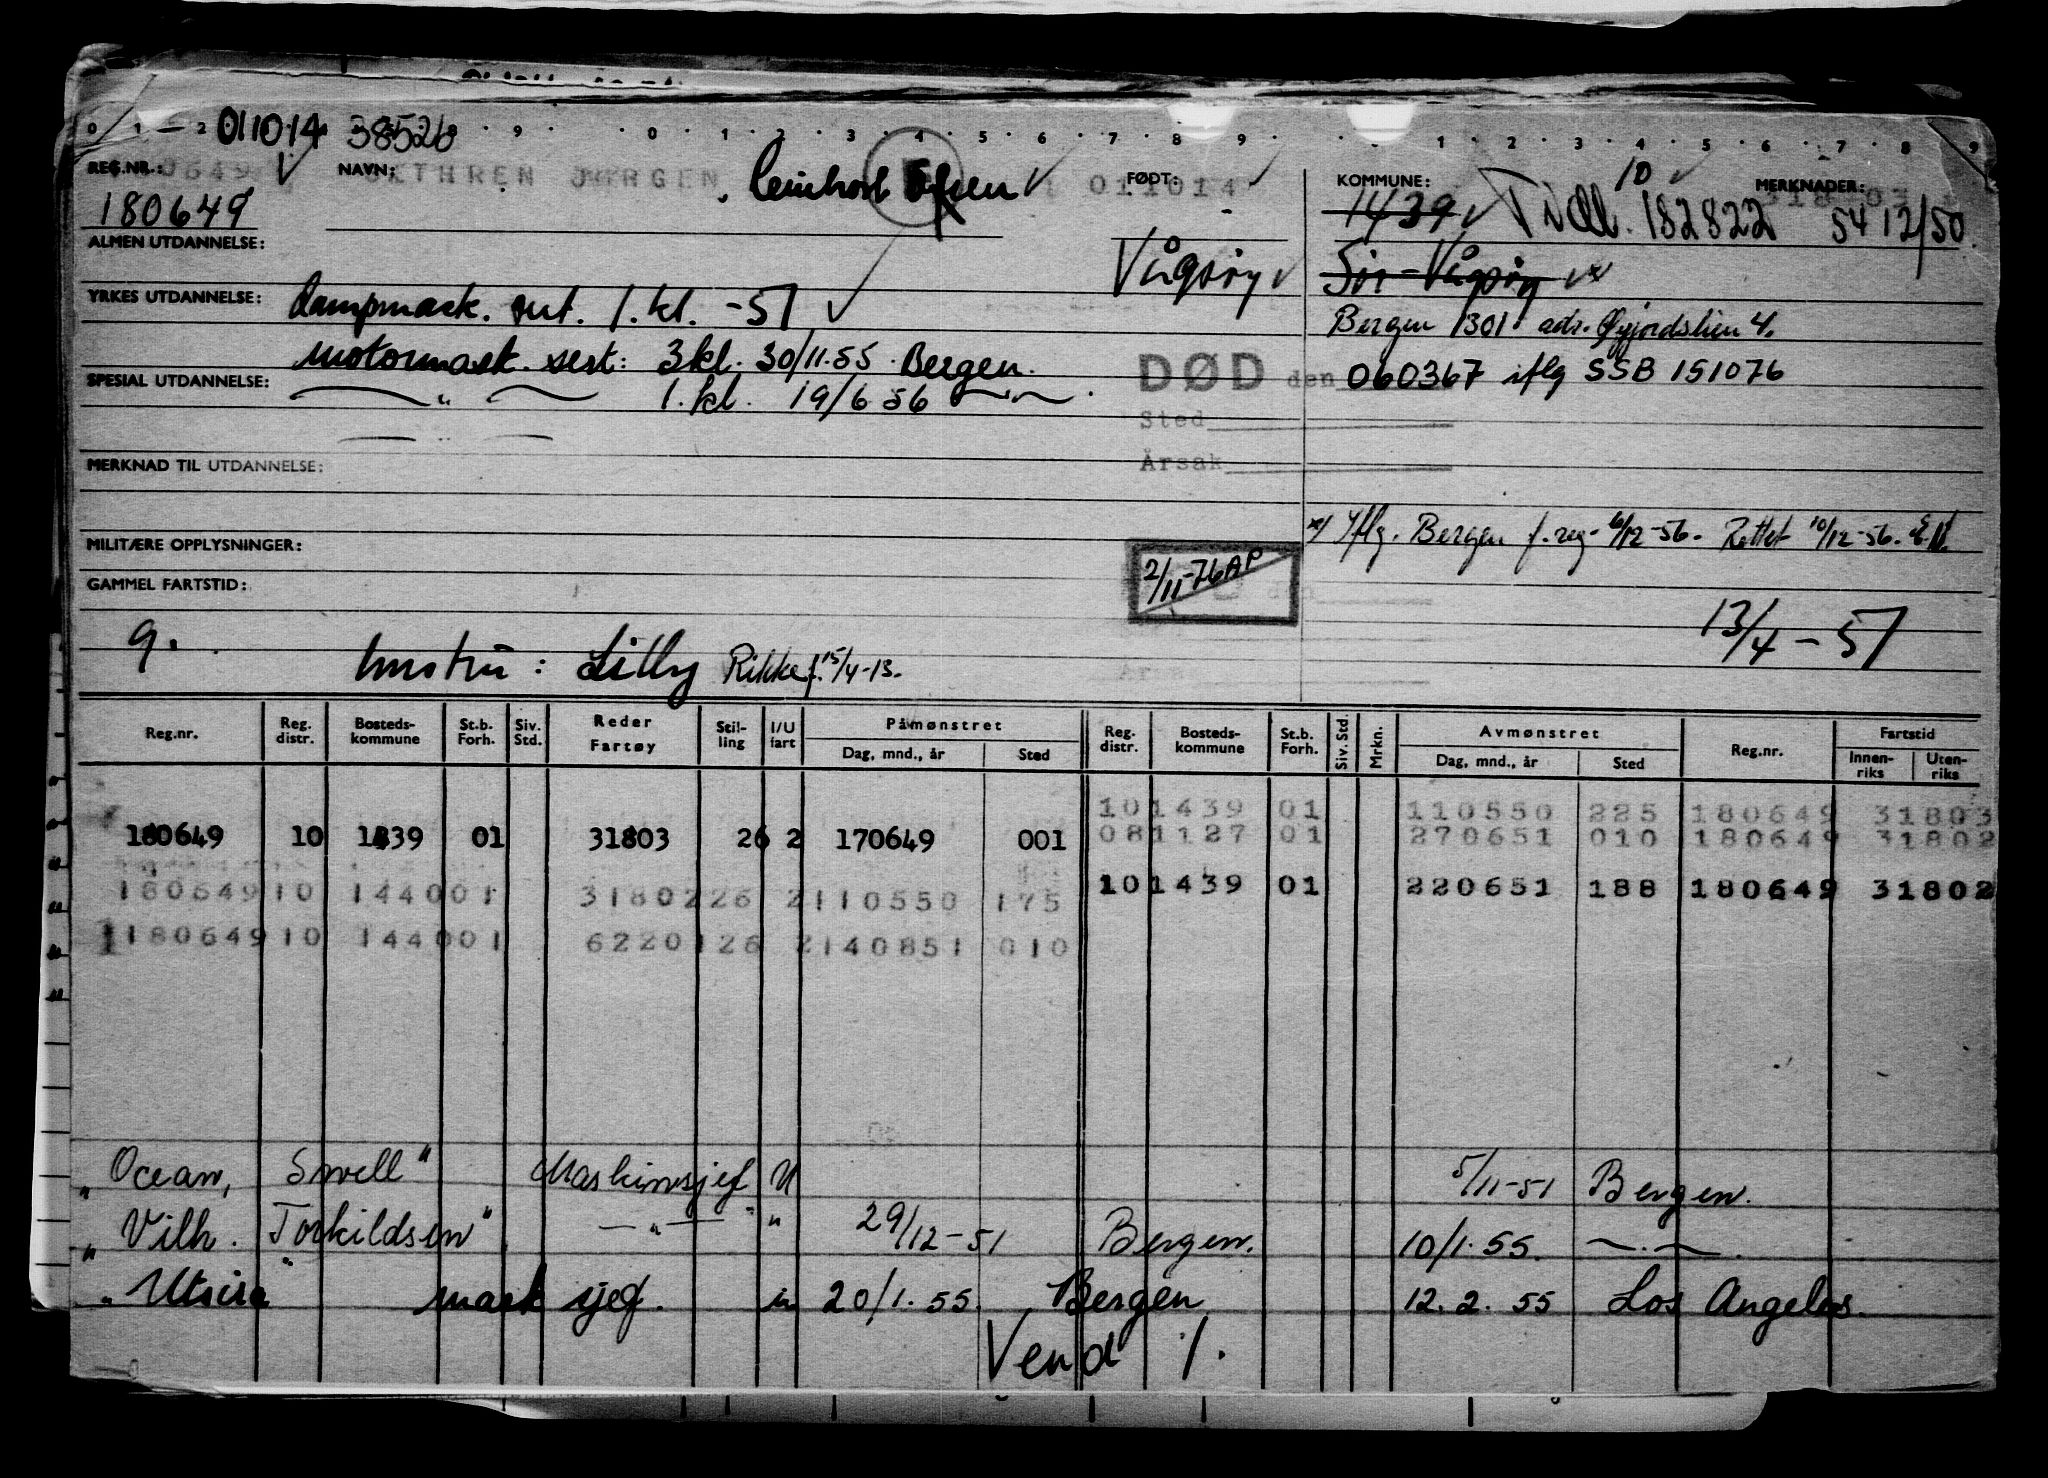 0 1 2 011014 38526 9 0 1 2 3 4 5 6 7 8 9 1 2 3 4 5 6 7 8 9
REG.NR.: NAVN: JØRGEN FØDT: 011014 KOMMUNE: 10 MERKNADER:
180649 1439 Tidl. 182822 5412/50
ALMEN UTDANNELSE: Vågsøy Sør-Vågsøy x
YRKES UTDANNELSE: Dampmask. sert. 1. kl. -51 Bergen 1301 adr. Øyjordslien 4.
motormask. sert: 3 kl. 30/11.55 Bergen. DØD den 060367 iflg SSB 151076
SPESIAL UTDANNELSE: — " — 1. kl. 19/6 56 — " —
Sted
MERKNAD TIL UTDANNELSE: Årsak
x/ Iflg. Bergen f.reg. 6/12-56. Rettet 10/12-56.
MILITÆRE OPPLYSNINGER: 2/11-76 AP
GAMMEL FARTSTID: den
9. hustru: Lilly Rikke f. 15/4-13. 13/4-57
Reg.nr. Reg. distr. Bosteds-kommune St.b. Forh. Siv. Std. Reder Fartøy Stil-ling I/U fart Påmønstret Dag, mnd., år Sted Reg. distr. Bosteds-kommune St.b. Forh. Siv. Std. Mrkn. Avmønstret Dag, mnd., år Sted Reg.nr. Fartstid Innen-riks Uten-riks
10 1439 01 110550 225 180649 31803
180649 10 1439 01 31803 26 2 170649 001 08 1127 01 270651 010 180649 31802
180649 10 1440 01 31802 26 2 110550 175 10 1439 01 220651 188 180649 31802
180649 10 1440 01 62201 26 2 140851 010
"Ocean Swell" Maskinsjef U 5/11-51 Bergen.
"Vilh. Torkildsen" — " — " 29/12-51 Bergen. 10/1.55. — " —
"Utsira" mask sjef. u 20/1.55. Bergen 12.2.55 Los Angeles.
Vend /.